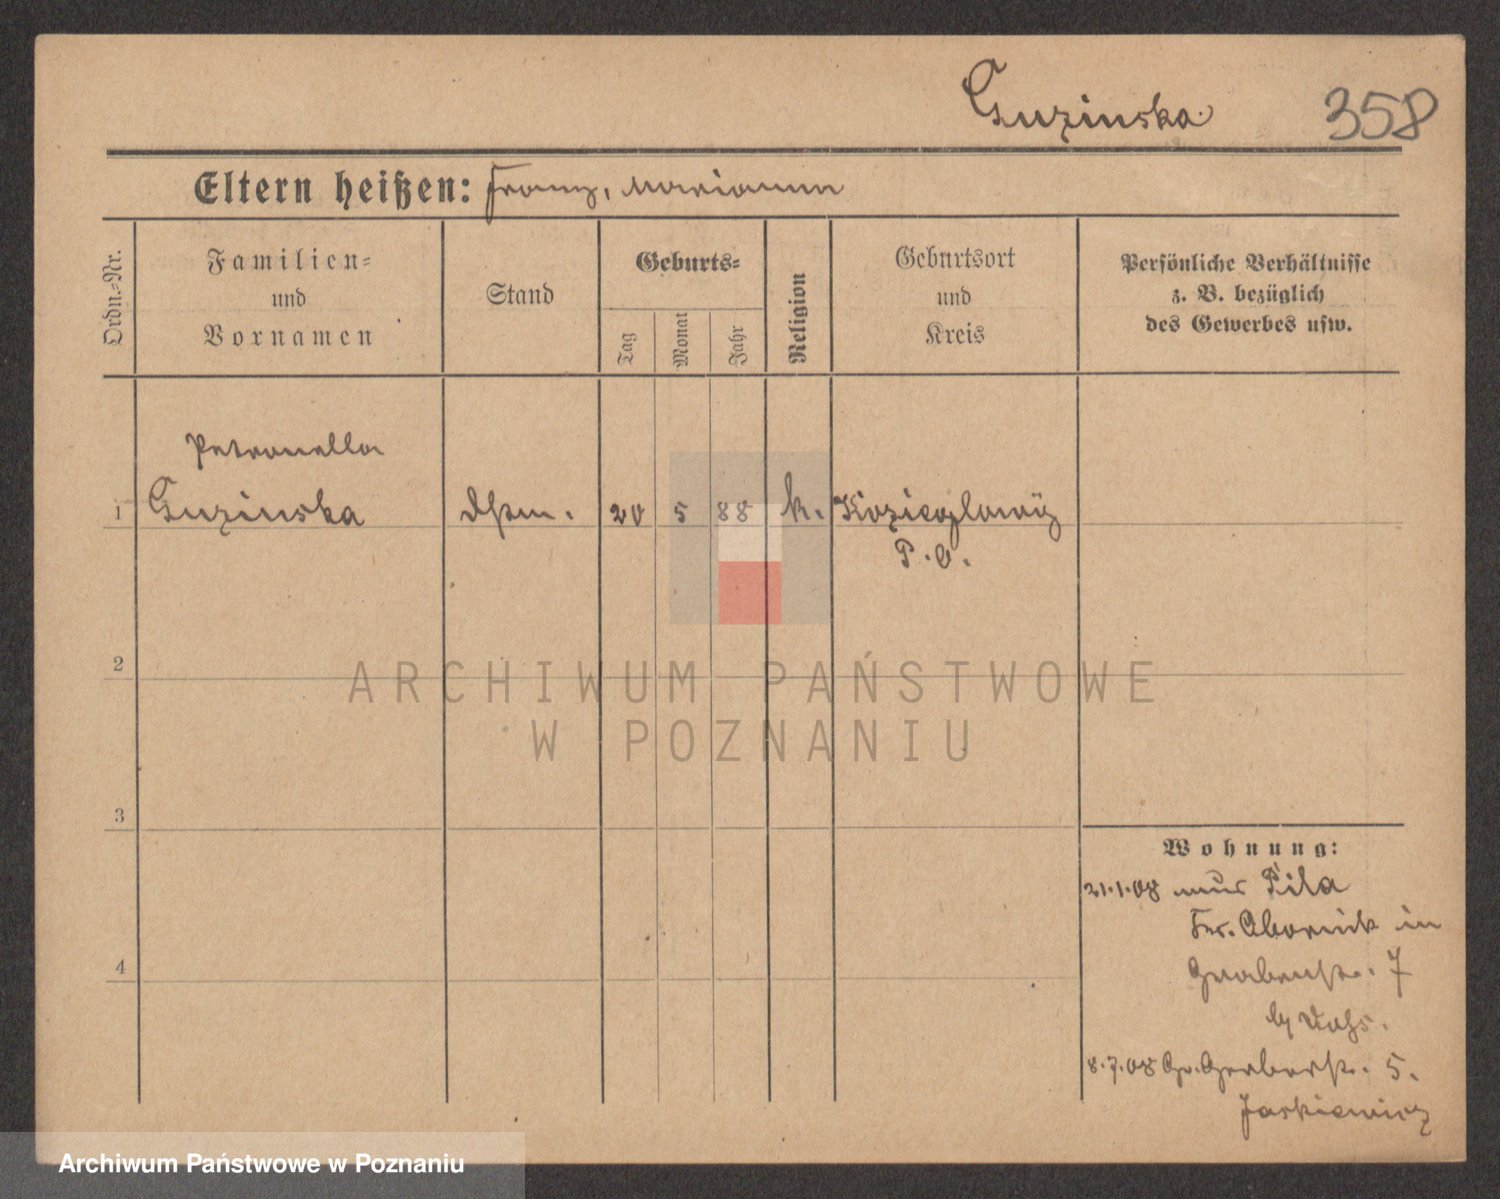 Guzinska 358
Eltern heißen: Franz, Marianna
Ordn.-Nr.
Familien-
und
Vornamen
Stand
Geburts-
Tag
Monat
Jahr
Religion
Geburtsort
und
Kreis
Persönliche Verhältnisse
z. B. bezüglich
des Gewerbes usw.
Petronella
1 Guzinska 20 5 88 k.
P. O.
2
3
4
Wohnung:
21.1.08 aus Pila
Krs. Obornik in
Grabenstr. 7
8.7.08 Gr. Gerberstr. 5.
Jaskiewicz
ARCHIWUM PAŃSTWOWE
W POZNANIU
Archiwum Państwowe w Poznaniu